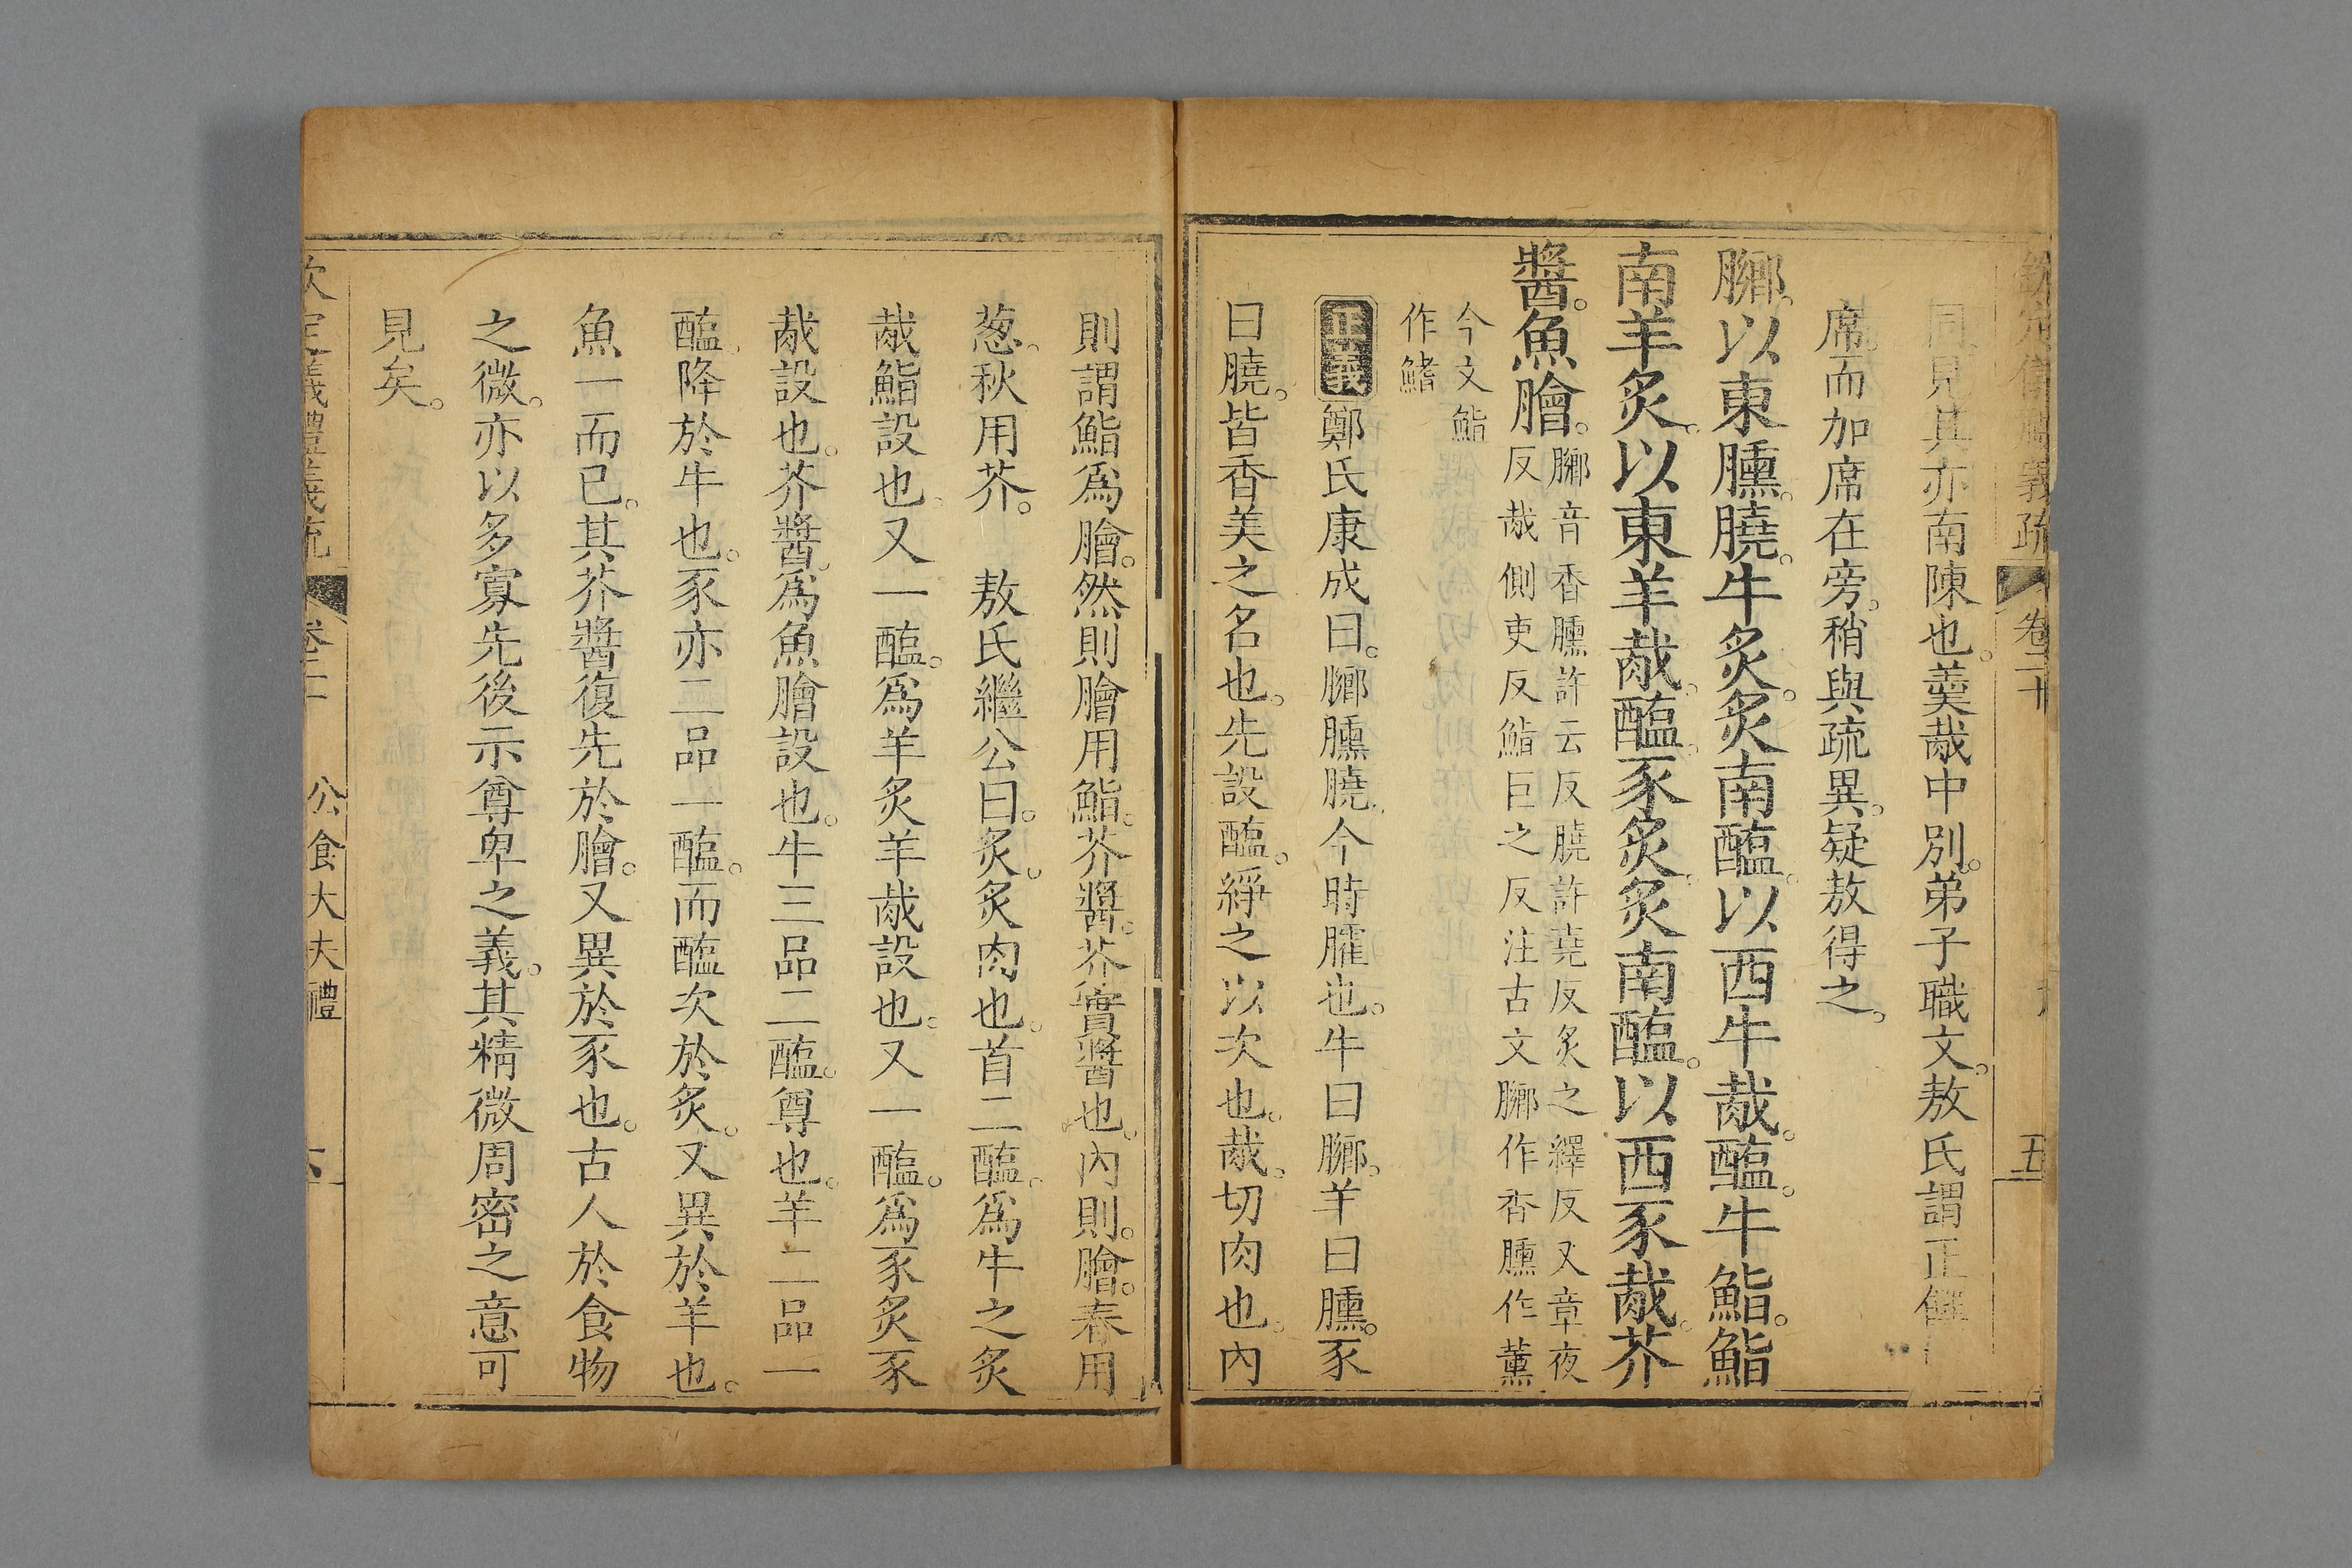 欽定儀禮義疏 卷二十 五
同見其亦南陳也。羹胾中別。弟子職文。敖氏謂正饌
席。而加席在旁。稍與疏異。疑敖得之。
膷。以東臐。膮。牛炙。炙南醢。以西牛胾。醢。牛鮨。鮨
南羊炙。以東羊胾。醢。豕炙。炙南醢。以西豕胾。芥
醬。魚膾。膷音香臐許云反膮許堯反炙之繹反又章夜
反胾側吏反鮨巨之反注古文膷作香臐作薰
今文鮨
作鰭
正義鄭氏康成曰。膷臐膮。今時臛也。牛曰膷。羊曰臐。豕
曰膮。皆香美之名也。先設醢。綪之以次也。胾。切肉也。內
則謂鮨爲膾。然則膾用鮨。芥醬。芥實醬也。內則。膾。春用
葱。秋用芥。 敖氏繼公曰。炙。炙肉也。首二醢。爲牛之炙
胾鮨設也。又一醢。爲羊炙羊胾設也。又一醢。爲豕炙豕
胾設也。芥醬。爲魚膾設也。牛三品二醢。尊也。羊二品一
醢。降於牛也。豕亦二品一醢。而醢次於炙。又異於羊也。
魚一而已。其芥醬復先於膾。又異於豕也。古人於食物
之微。亦以多寡先後示尊卑之義。其精微周密之意可
見矣。
欽定儀禮義疏 卷二十 公食大夫禮 六